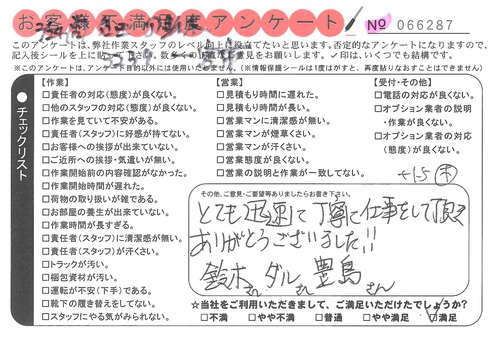 お客様不満足度アンケート
No 066287
このアンケートは、弊社作業スタッフのレベル向上に役立てたいと思います。否定的なアンケートになりますので、
記入後シールを上に貼って下さい。数多くの意見をお願いします。✓印は、いくつでも結構です。
※このアンケートは、アンケート目的以外には使用いたしません。(※情報保護シールは1度はがすと、再度貼りなおすことはできません)
チェックリスト
【作業】
□責任者の対応(態度)が良くない。
□他のスタッフの対応(態度)が良くない。
□作業を見ていて不安がある。
□責任者(スタッフ)に好感が持てない。
□お客様への挨拶が出来ていない。
□ご近所への挨拶・気遣いが無い。
□作業開始前の内容確認がなかった。
□作業開始時間が遅れた。
□荷物の取り扱いが雑である。
□お部屋の養生が出来ていない。
□作業時間が長すぎる。
□責任者(スタッフ)に清潔感が無い。
□責任者(スタッフ)が汗くさい。
□トラックが汚い。
□梱包資材が汚い。
□運転が不安(下手)である。
□靴下の履き替えをしてない。
□スタッフにやる気がみられない。
【営業】
□見積もり時間に遅れた。
□見積もり時間が長い。
□営業マンに清潔感が無い。
□営業マンが煙草くさい。
□営業マンが汗くさい。
□営業態度が良くない。
□営業の説明と作業が一致してない。
【受付・その他】
□電話の対応が良くない。
□オプション業者の説明
・作業が良くない。
□オプション業者の対応
(態度)が良くない。
その他、ご意見・ご要望等ありましたらお書き下さい。
とても迅速に丁寧に仕事をして頂き
ありがとうございました!!
鈴木さん ダルさん 豊島さん
☆当社をご利用いただきまして、ご満足いただけたでしょうか?
□不満 □やや不満 □普通 □やや満足 ☑満足